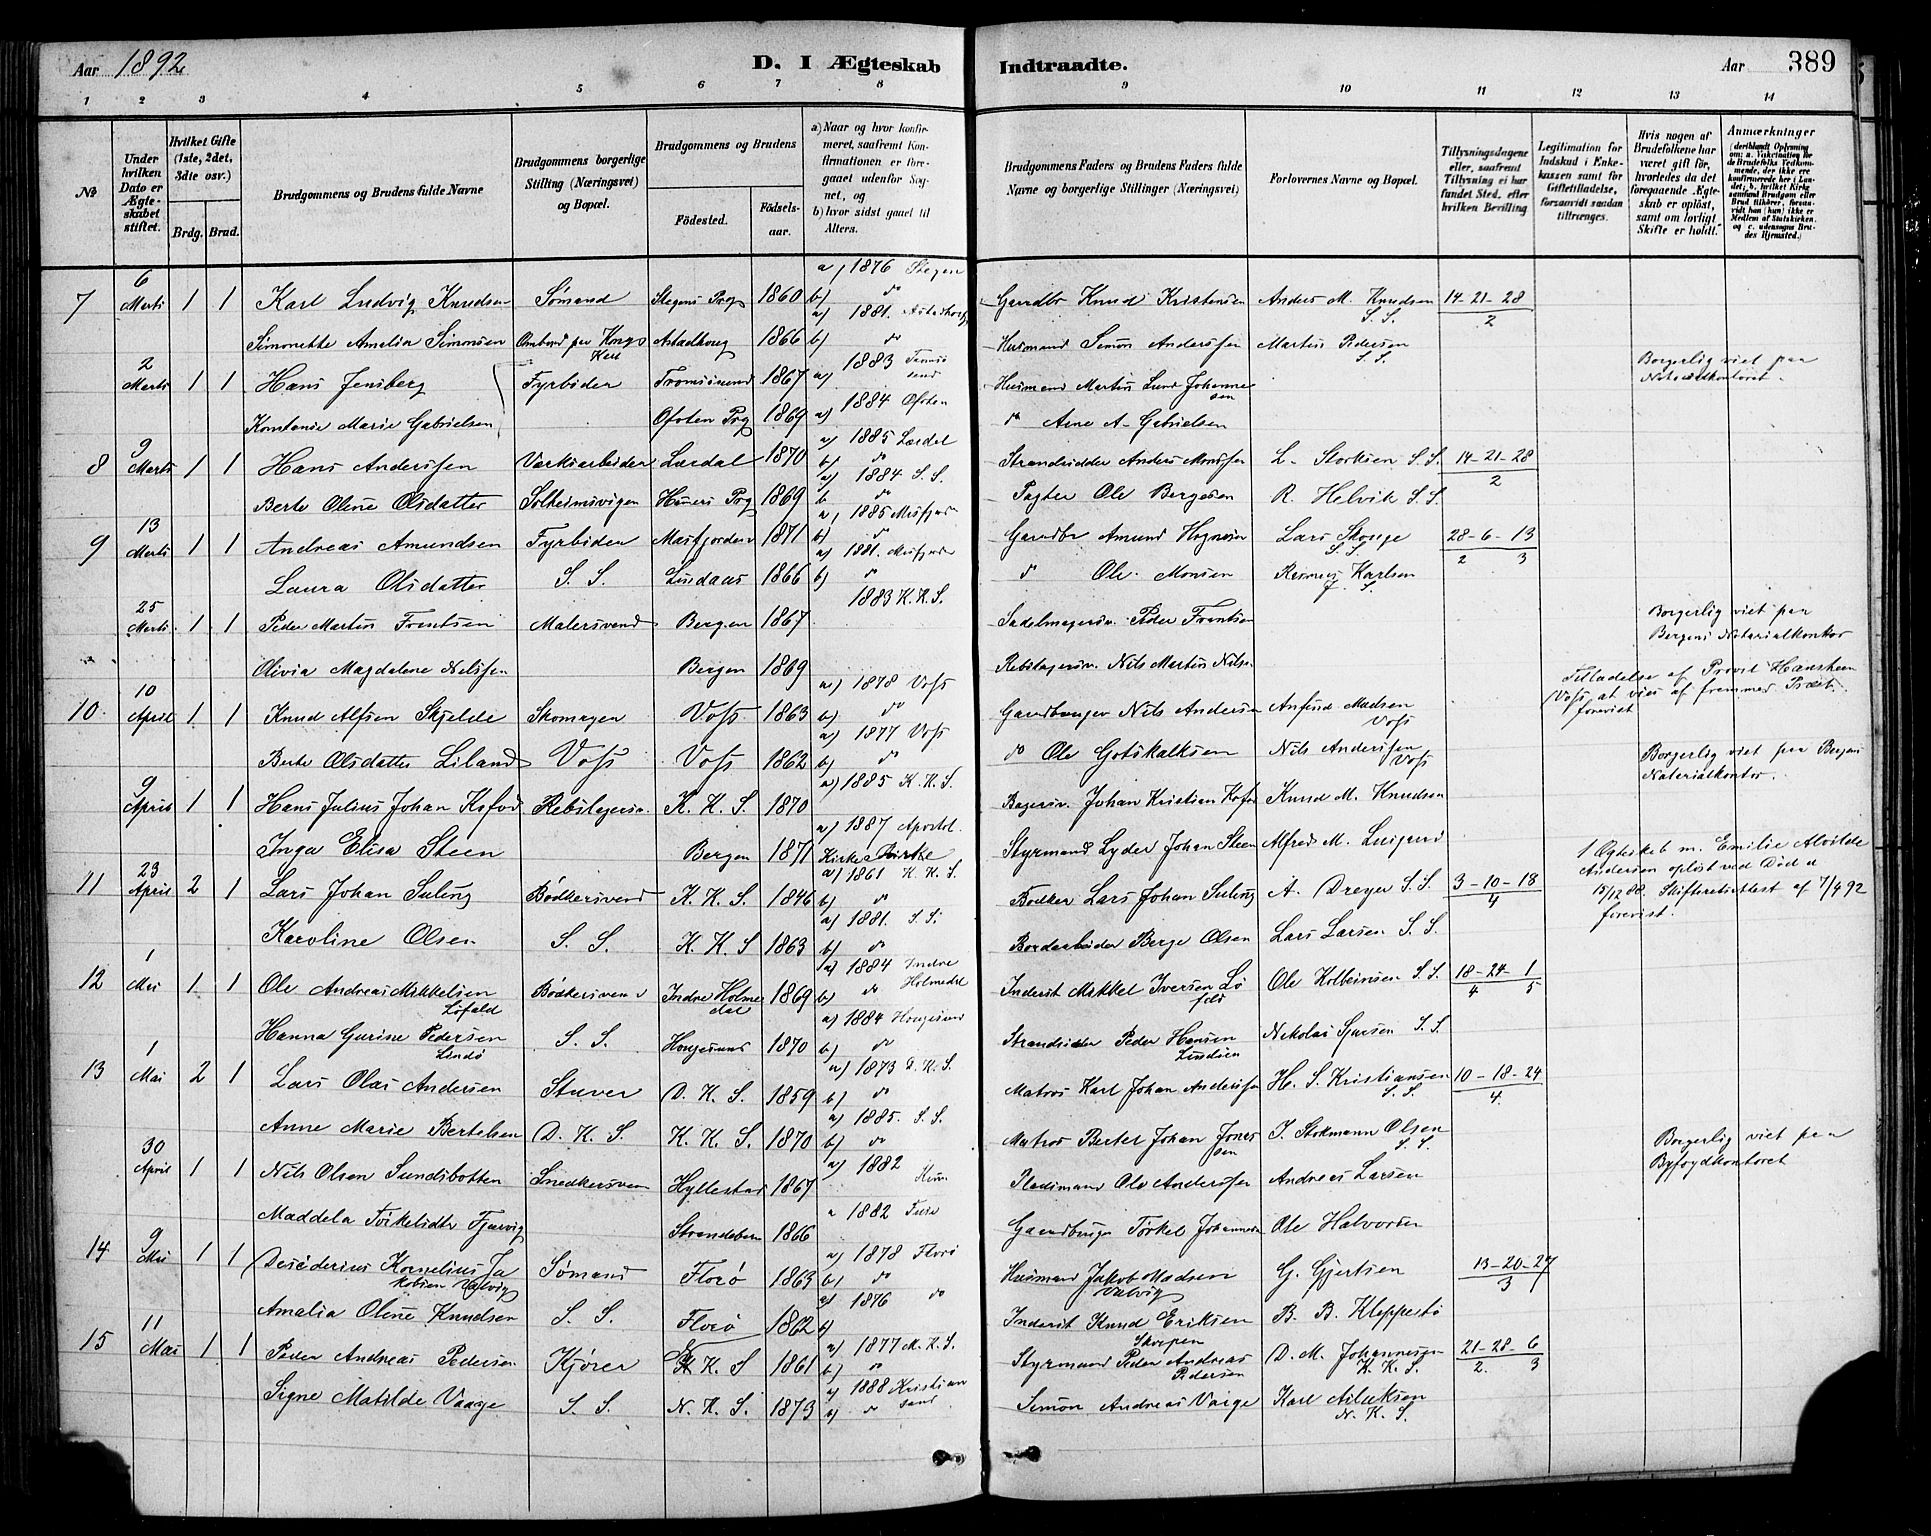 Aar 1892
D. I Ægteskab Indtraadte.
Aar 389
1 2 3 4 5 6 7 8 9 10 11 12 13 14
№
Under hvilken Dato er Ægteskabet stiftet.
Hvilket Gifte (1ste, 2det, 3die osv.)
Brdg. Brud.
Brudgommens og Brudens fulde Navne
Brudgommens borgerlige Stilling (Næringsvei) og Bopæl.
Brudgommens og Brudens
Födested. Födselsaar.
a) Naar og hvor konfirmeret, saafremt Konfirmationen er foregaaet udenfor Sognet, og
b) hvor sidst gaaet til Alters.
Brudgommens Faders og Brudens Faders fulde Navne og borgerlige Stillinger (Næringsvei)
Forlovernes Navne og Bopæl.
Tillysningsdagene eller, saafremt Tillysning ei har fundet Sted, efter hvilken Bevilling
Legitimation for Indskud i Enkekassen samt for Giftetilladelse, forsaavidt saadan tiltrænges.
Hvis nogen af Brudefolkene har været gift før, hvorledes da det foregaaende Ægteskab er oplöst, samt om lovligt Skifte er holdt.
Anmærkninger
7 6 Marts 1 1 Karl Ludvig Knudsen Sømand Stegens Prg 1860 a) 1876 Stegen b) do Gaardbr Knud Kristensen Anders M. Knudsen S. S. 14-21-28 2
Simonette Amalia Simonsen Astadhoug 1866 a) 1881. b) do Husmand Simon Anderssen Martin Pedersen S. S.
2 Marts 1 1 Hans Jensberg Fyrbøder Tromsøsund 1867 a) 1883 Husmand Martin Lund Johannesen Borgerlig viet paa Notarialkontoret.
Konstanse Marie Gabrielsen Ofoten Prg 1869 a) 1884 Ofoten do Arne A. Gabrielsen
8 9 Marts 1 1 Hans Anderssen Værksarbeider Lærdal 1870 a) 1885 Lærdal b) do Strandsidder Anders Monssen L. Storksen S. S. 14-21-28 2
Berte Oline Olsdatter Solheimsvigen 1869 a) 1884 S. S. b do Pagter Ole Bergesen R. Helvik S. S.
9 13 Marts 1 1 Andreas Amundsen Fyrbøder Masfjorden 1871 a) 1885 Masfjorden b) do Gaardbr Amund Lars Skouge S. S. 28-6-13 2 3
Laura Olsdatter S. S. Lindaas 1866 a) 1881. Masfjorden b) do do Ole Monsen Rasmus Karlsen S. S.
25 Marts 1 1 Peder Martin Frantsen Malersvend Bergen 1867 1883 K. K. S. Sadelmagersv. Peder Frantsen Borgerlig viet paa Bergens Notarialkontor
Olivia Magdalene Nilssen Bergen 1869 Rebslagersv. Nils Martin Nilsen
10. 10 April 1 1 Knud Alfsen Skjelde Skomager Voss 1863 a) 1878 Voss b) do Gaardbruger Nils Andersen Anfind Madsen Voss Tilladelse af Provst Hanssteen Voss at vies af fremmed Præst. forevist
Berte Olsdatter Liland Voss Voss 1862 a) 1877 Voss b) do do Ole Gotskalksen Nils Anderssen Voss
9 April 1 1 Hans Julius Johan Kofod Rebslagersv. K. K. S. 1870 a) 1885 K. K. S. Bagersv. Johan Kristian Kofod Knud M. Knudsen Borgerlig viet paa Bergens Notarialkontor.
Inga Elisa Steen Bergen 1871 a) 1887 Apostol. Kirke Styrmand Lyder Johan Steen Alfred M.
11 23 April 2 1 Lars Johan Suling Bødkersvend K. K. S. 1846 a) 1861 K. K. S. b) do Bødker Lars Johan Suling A. Dreyer S. S. 3-10-18 4 1 Ægteskab m. Emilie Alvilde Andersen opløst ved Død d 15/12 88. Skifteretsattest af 7/4 92 forevist.
Karoline Olsen S. S. K. K. S 1863 a) 1881. S. S. b) do Berge Olsen Lars Larsen S. S.
12 1 Mai 1 1 Ole Andreas Mikkelsen Løfald Bødkersvend Indre Holmedal 1869 a) 1884 Indre Holmedal b) do Inderst Mikkel Iversen Ole Kolbeinsen S. S. 18-24-1 4 5
Hanna Gurine Pedersen Lindø S. S. Hougesund 1870 a) 1884 Hougesund b) do Strandsidder Peder Hansen Nikolai Sjursen S. S.
13 1 Mai 2 1 Lars Olai Andersen Stuver D. K. S. 1859 a) 1873 D. K. S. b) do Matros Karl Johan Anderssen H. S. Kristiansen S. S. 10-18-24 4.
Anne Marie Bertelsen D. K. S. K. K. S. 1870 a) 1885. S. S. b) do Matros Bertel Johan Jonassen J. Stokmann Olsen S. S.
30 April 1 1 Nils Olson Sundsbotten Snedkersven Hyllestad 1867 a) 1882 Pladsmand Ole Anderssen Andreas Larsen Borgerlig viet paa Byfogdkontoret
Maddela 1866 a 1882 Gaardbruger Torkel Johannesen Ole Halvorsen
14 9 Mai 1 1 Desiderius Kornelius Jakobsen Valvig Sømand Florø 1863 a) 1878 Florø b) do Husmand Jakob Madsen Valvig G. Gjertsen 13-20-27 3
Amalia Oline Knudsen S. S. Florø 1862 a) 1876 do b) Inderst Knud Eriksen Skorpen B. B. Kleppestø
15 11 Mai 1 1 Peder Andreas Pedersen Kjører N. K. S 1861 a) 1877 N. K. S. b) do Styrmand Peder Andreas Pedersen D. M. Johannesen K. K. S. 21-28-6 2. 3
Signe Matilde Vaage S. S. N. K. S. 1873 a) 1888 Kristiansand do Simon Andreas Vaage Karl N. K. S.